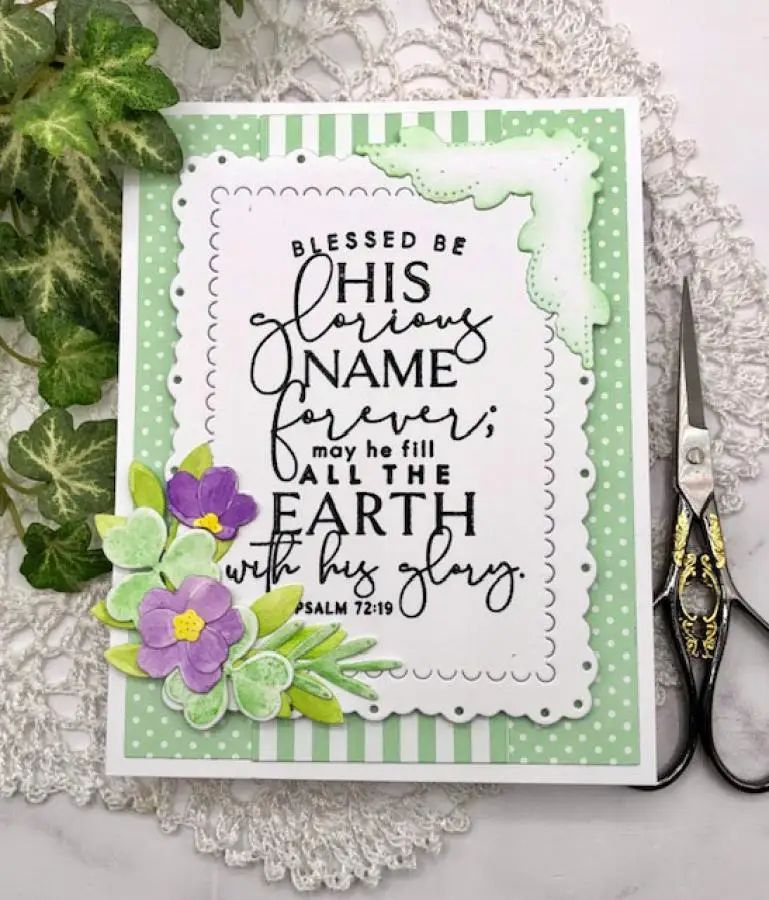 BLESSED BE
HIS
glorious
NAME
forever;
may he fill
ALL THE
EARTH
with his glory.
PSALM 72:19